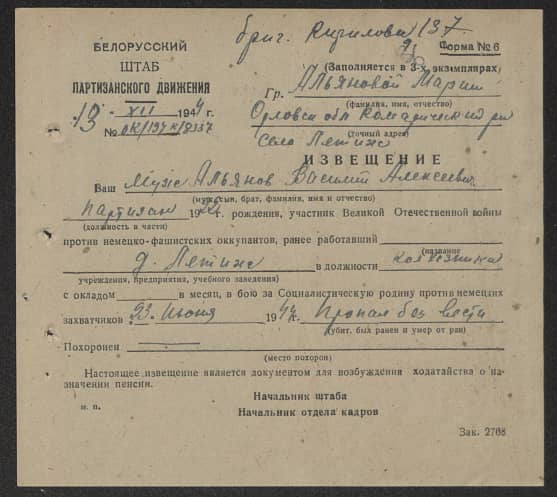 бриг. Кирилова 137
БЕЛОРУССКИЙ
ШТАБ
ПАРТИЗАНСКОГО ДВИЖЕНИЯ
Форма № 6
(Заполняется в 3-х экземплярах)
Гр. Альяновой Марии
(фамилия, имя, отчество)
13. XII 1944 г.
№ ОК/137к/8257
Орловск обл Комаричский р-н
(точный адрес)
село Лепише
ИЗВЕЩЕНИЕ
Ваш муж Альянов Василий Алексеевич
(муж, сын, брат, фамилия, имя и отчество)
партизан 19 г. рождения, участник Великой Отечественной войны
(должность в части)
против немецко-фашистских оккупантов, ранее работавший
(название
д. Лепише в должности колхозника
учреждения, предприятия, учебного заведения)
с окладом в месяц, в бою за Социалистическую родину против немецких
захватчиков 23. июня 1944 г. Пропал без вести
(убит, был ранен и умер от ран)
Похоронен
(место похорон)
Настоящее извещение является документом для возбуждения ходатайства о на-
значении пенсии.
Начальник штаба
м. п.
Начальник отдела кадров
Зак. 2768